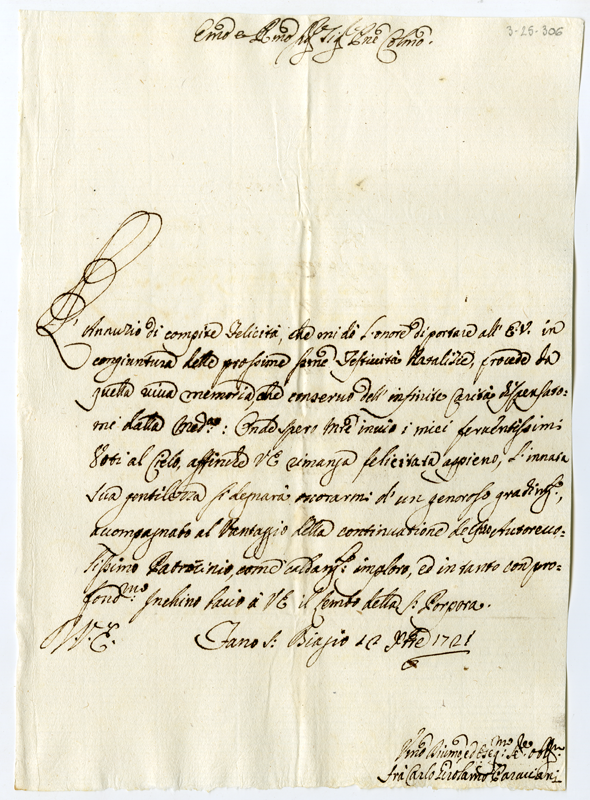 3-25-306
Emo e Rmo Sig.r Sig.r Pne Colmo.
L'Annuzio di compite Felicità, che mi dò l'onore di portare all' E.V. in
congiuntura delle prossime sme Festività Natalizie, procede da
quella viva memoria, che conservo dell' infinite Carità dispensate=
mi dalla Med.ma: Onde spero mre invio i miei ferventissimi
Voti al Cielo, affinche V.E. rimanga felicitata appieno, l'innata
Sua gentilezza si degnarà onorarmi d' un generoso gradim.to,
accompagnato al Vantaggio della continuatione dello Autorevo=
lissimo Patrocinio, come caldam.te imploro, ed in tanto con pro=
fond.mo Inchino bacio à V.E. il lembo della S. Porpora.
D. V. E. Fano S. Biagio 12 Xbre 1721
Fra Carlo Girolamo